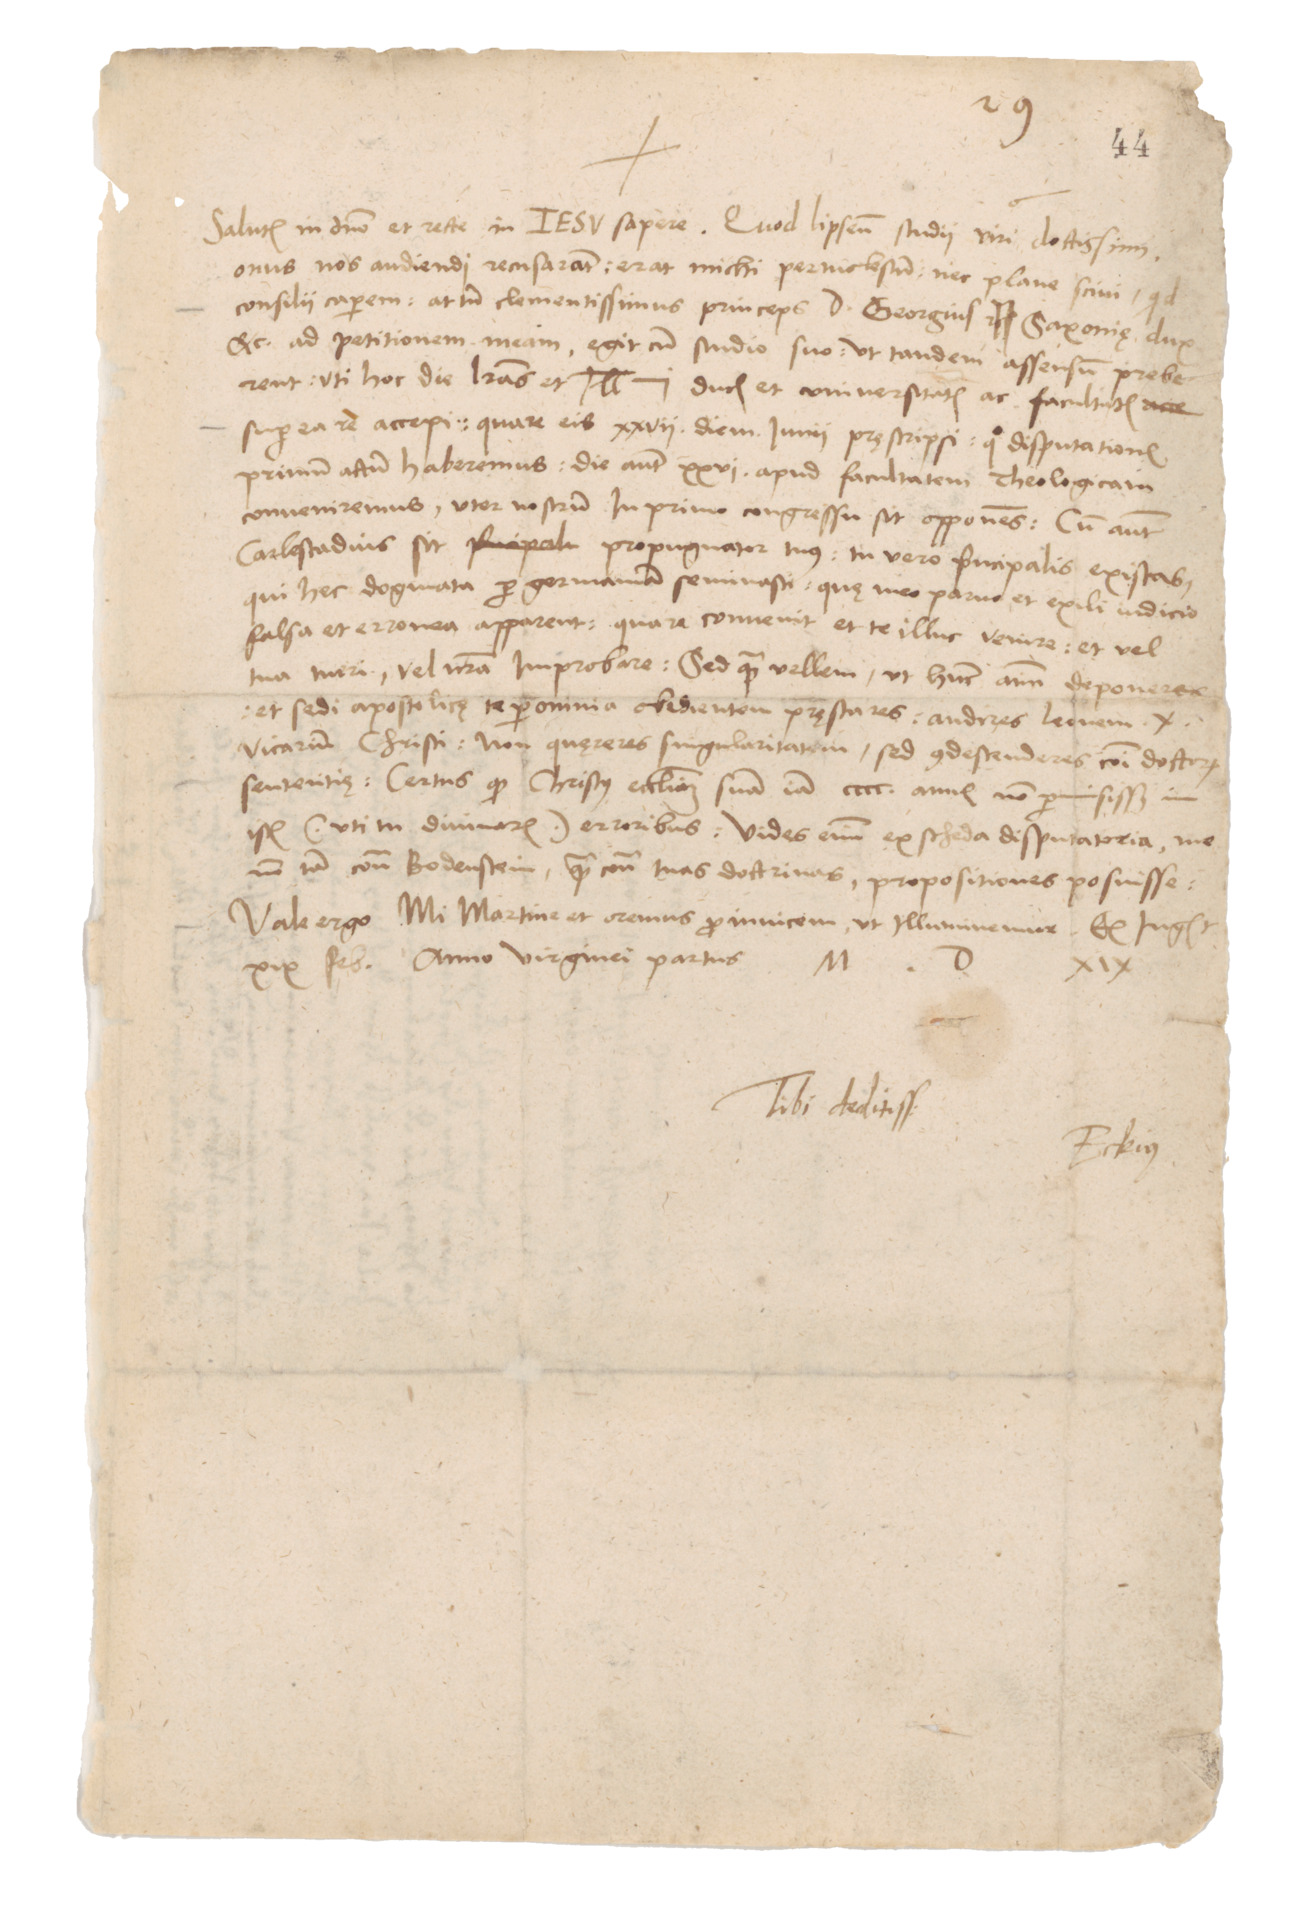 29
44
Salutē in dnō et recte in IESV sapere. Quod lipsenẽ studii viri doctissimi,
onus nos audiendi recusarāt: erat michi permolestū: nec plane scivi, qd
consilii caperem: at tū clementissimus princeps D. Georgius Saxonię dux
&c. ad petitionem meam, egit cū studio suo: vt tandem assensū prebe
rent: vti hoc die lrās et Ill ducꝭ et vniversitatꝭ ac facultatꝭ
super ea re accepi: quare eis xxvii. diem Junii pręscripsi: qͦ disputationꝭ
primū actū haberemus: die aut̄ xxvi. apud facultatem Theologicam
conveniremus, vter nostrū In primo congressu sit opponēs: Cū aut̄
Carlestadius sit propugnator tuꝯ: tu vero prīcipalis existas,
qui hec dogmata ꝑ germaniā seminasti: quę meo parvo et exili iudicio
falsa et erronea apparent: quare convenit et te illuc venire: et vel
tua tueri, vel nrā Improbare: Sed qͣ vellem, vt hūc aīm deponeres
: et sedi apostolicę te ꝑ omnia obedientem pręstares: audires leonem .X.
vicariū Christi: Non quęreres singularitatem, sed ꝯdescenderes cōi doctorꝝ
sententię: Certus ꝙ Christꝯ eccliam suā iā cccc. annꝭ nō ꝑmisissꝫ in
istꝭ (: vti tu divinarꝭ :) erroribus: Vides eim̄ ex scheda disputatoria, me
nō tā cont̄ Bodenstein, qͣ cont̄ tuas doctrinas, propositiones posuisse:
Vale ergo Mi Martine et oremus ꝓ invicem, vt Illuminemur. Ex Ingꝭt
xix feb. Anno virginei partus M . D XIX
Tibi deditiss.
Eckiꝯ